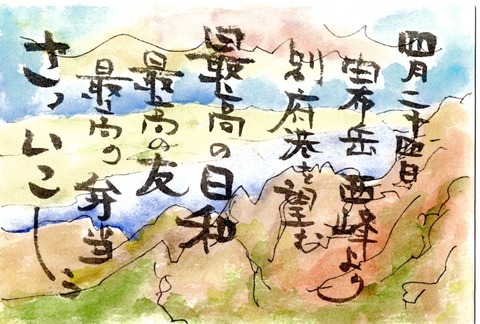 四月二十四日
由布岳 西峰より
別府港を望む
最高の日和
最高の友
最高の弁当
さっ いこーう